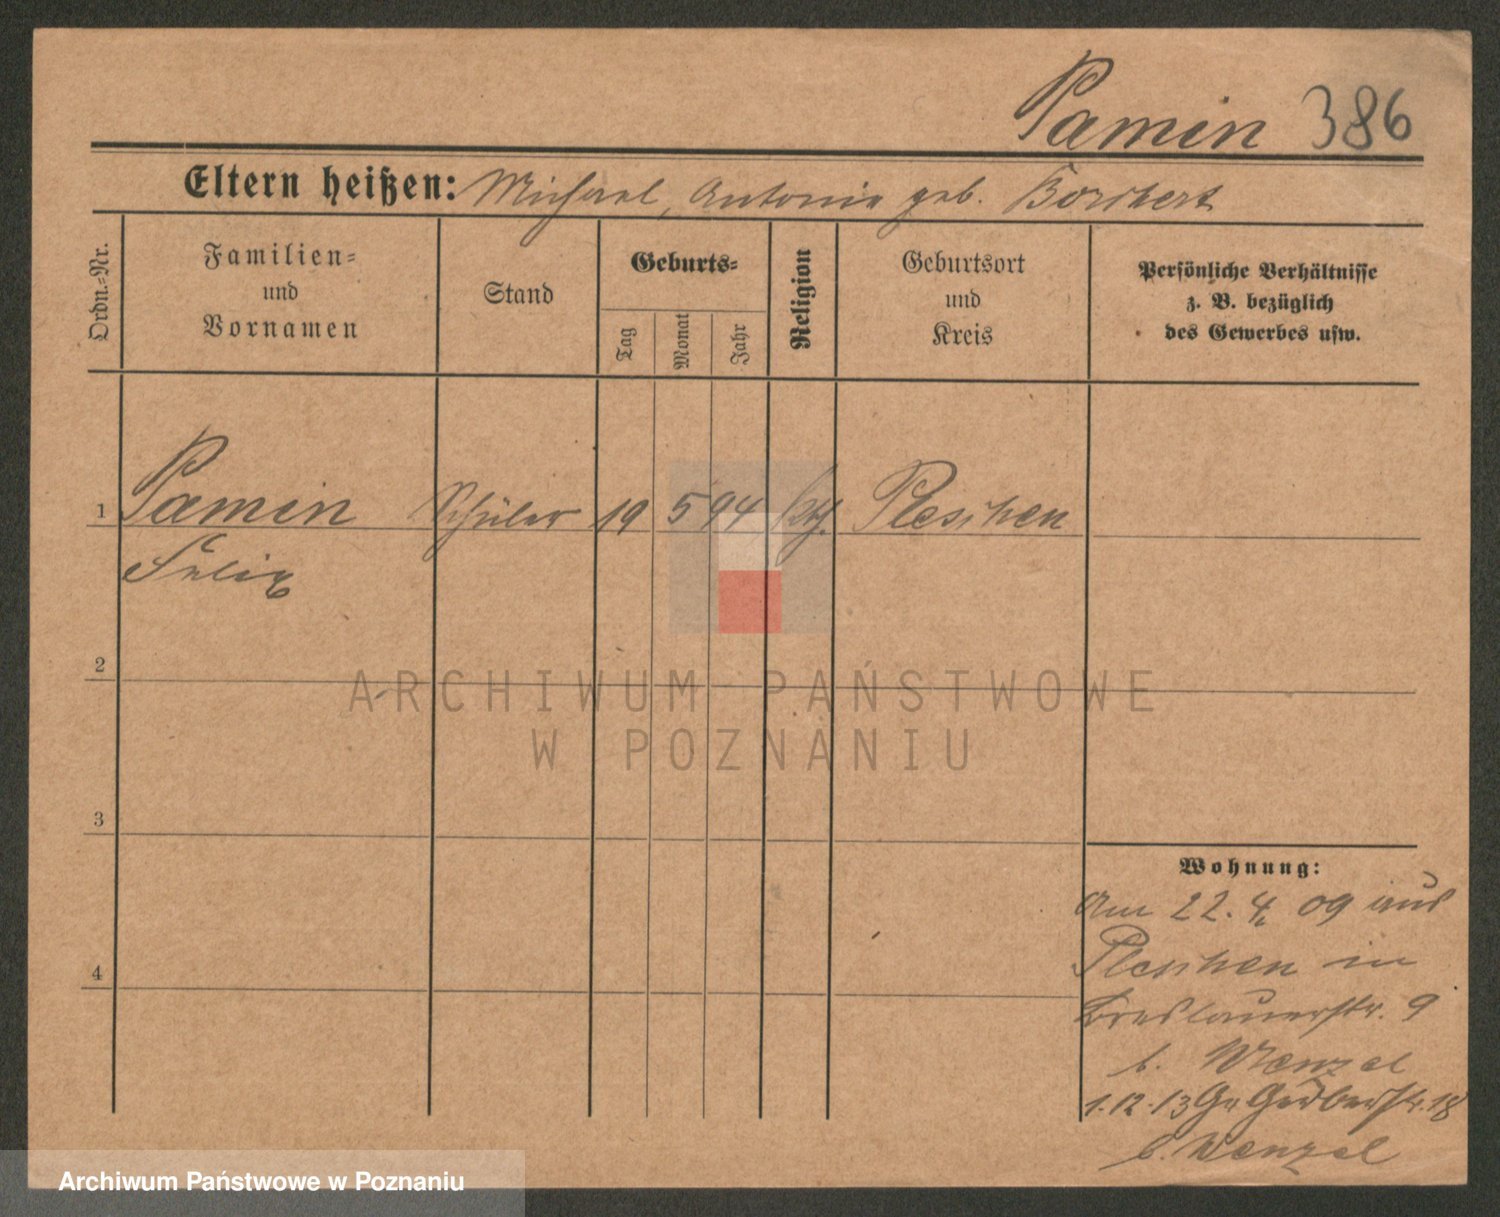 Pamin 386
Eltern heißen: Michael, Antonie geb. Borchert
Ordn.=Nr.
Familien=
und
Vornamen
Stand
Geburts=
Tag
Monat
Jahr
Religion
Geburtsort
und
Kreis
Persönliche Verhältnisse
z. B. bezüglich
des Gewerbes usw.
1 Pamin Schüler 19 5 94 kth. Pleschen
Felix
2
3
4
Wohnung:
Am 22. 4. 09 aus
Pleschen in
Breslauerstr. 9
b. Wenzel
1.12.13 Gr. Gerberstr. 18
b. Wenzel
ARCHIWUM PAŃSTWOWE
W POZNANIU
Archiwum Państwowe w Poznaniu